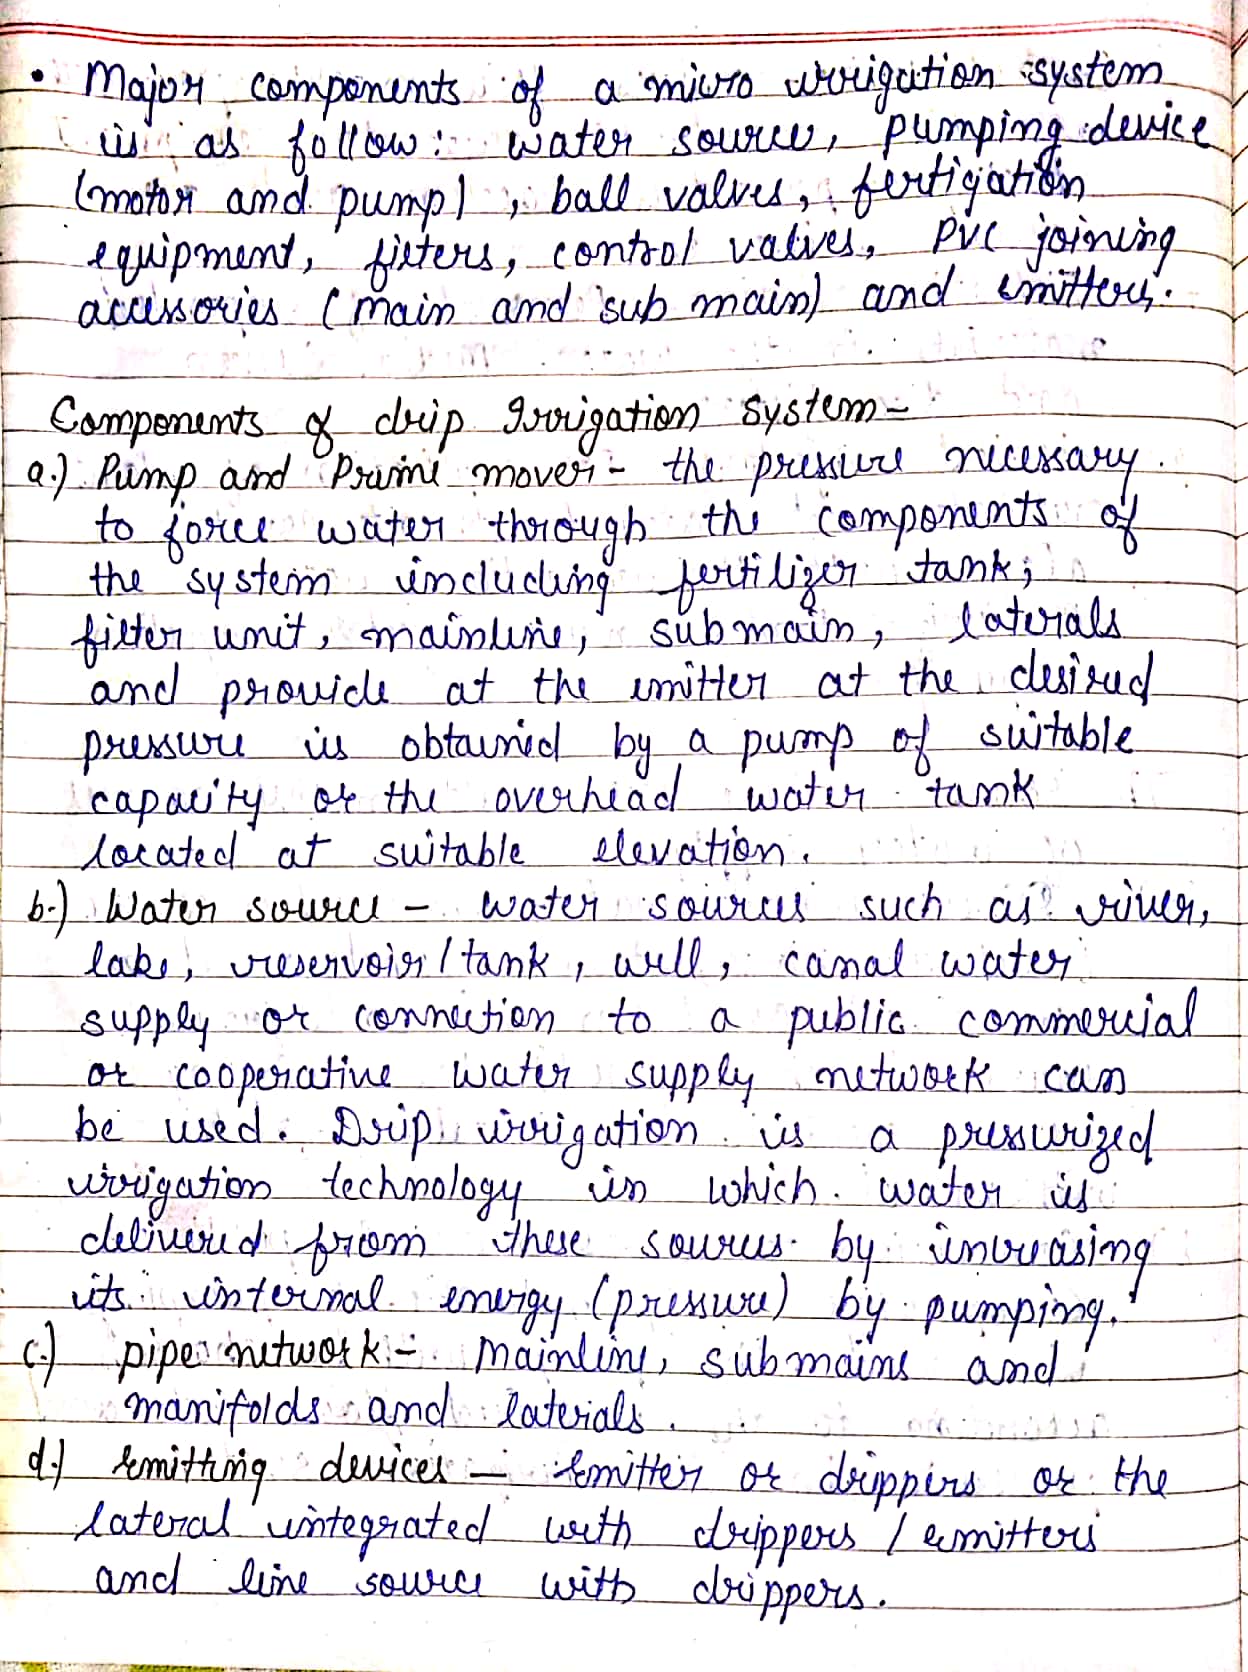 • Major components of a micro irrigation system
is as follow: water source, pumping device
(motor and pump), ball valves, fertigation
equipment, filters, control valves, PVC joining
accessories (main and sub main) and emitters.
Components of drip Irrigation system -
a.) Pump and Prime mover - the pressure necessary
to force water through the components of
the system including fertilizer tank,
filter unit, mainline, submain, laterals
and provide at the emitter at the desired
pressure is obtained by a pump of suitable
capacity or the overhead water tank
located at suitable elevation.
b.) Water source - water sources such as river,
lake, reservoir / tank, well, canal water
supply or connection to a public commercial
or cooperative water supply network can
be used. Drip irrigation is a pressurized
irrigation technology in which water is
delivered from these sources by increasing
its internal energy (pressure) by pumping.
c.) pipe network - Mainline, submains and
manifolds and laterals.
d.) Emitting devices - Emitter or drippers or the
lateral integrated with drippers / emitters
and line source with drippers.